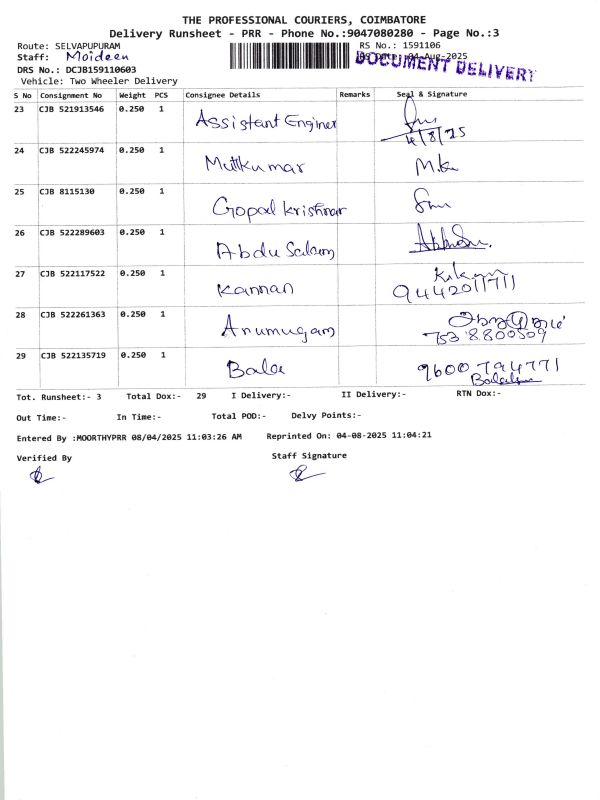 THE PROFESSIONAL COURIERS, COIMBATORE
Delivery Runsheet - PRR - Phone No.:9047080280 - Page No.:3
Route: SELVAPUPURAM RS No.: 1591106
Staff: Moideen 04-Aug-2025
DOCUMENT DELIVERY
DRS No.: DCJB159110603
Vehicle: Two Wheeler Delivery
S No Consignment No Weight PCS Consignee Details Remarks Seal & Signature
23 CJB 521913546 0.250 1 Assistant Enginer 4/8/25
24 CJB 522245974 0.250 1 Muttkumar M.
25 CJB 8115130 0.250 1 Gopal krishnar
26 CJB 522289603 0.250 1 Abdu Salam
27 CJB 522117522 0.250 1 Kannan 9442011711
28 CJB 522261363 0.250 1 Arumugam 7538800509
29 CJB 522135719 0.250 1 Bala 9600794771
Tot. Runsheet:- 3 Total Dox:- 29 I Delivery:- II Delivery:- RTN Dox:-
Out Time:- In Time:- Total POD:- Delvy Points:-
Entered By :MOORTHYPRR 08/04/2025 11:03:26 AM Reprinted On: 04-08-2025 11:04:21
Verified By Staff Signature